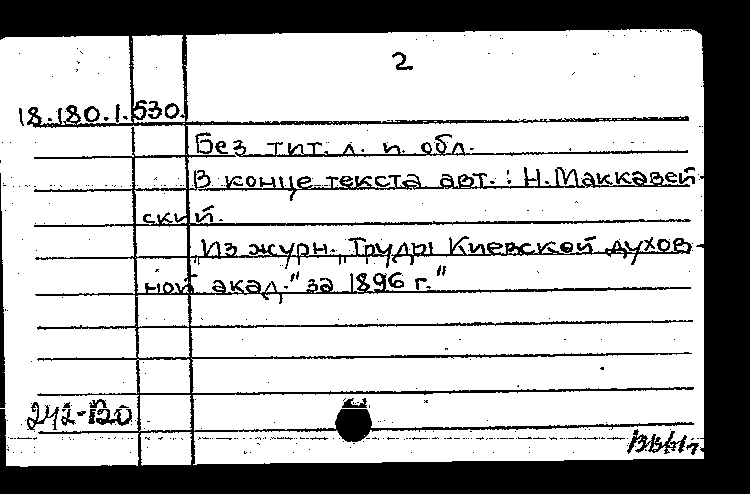 2
18.180.1.530.
Без тит. л. п. обл.
В конце текста авт.: Н. Маккавей-
ский.
„Из журн. „Труды Киевской духов-
ной акад." за 1896 г."
242-120